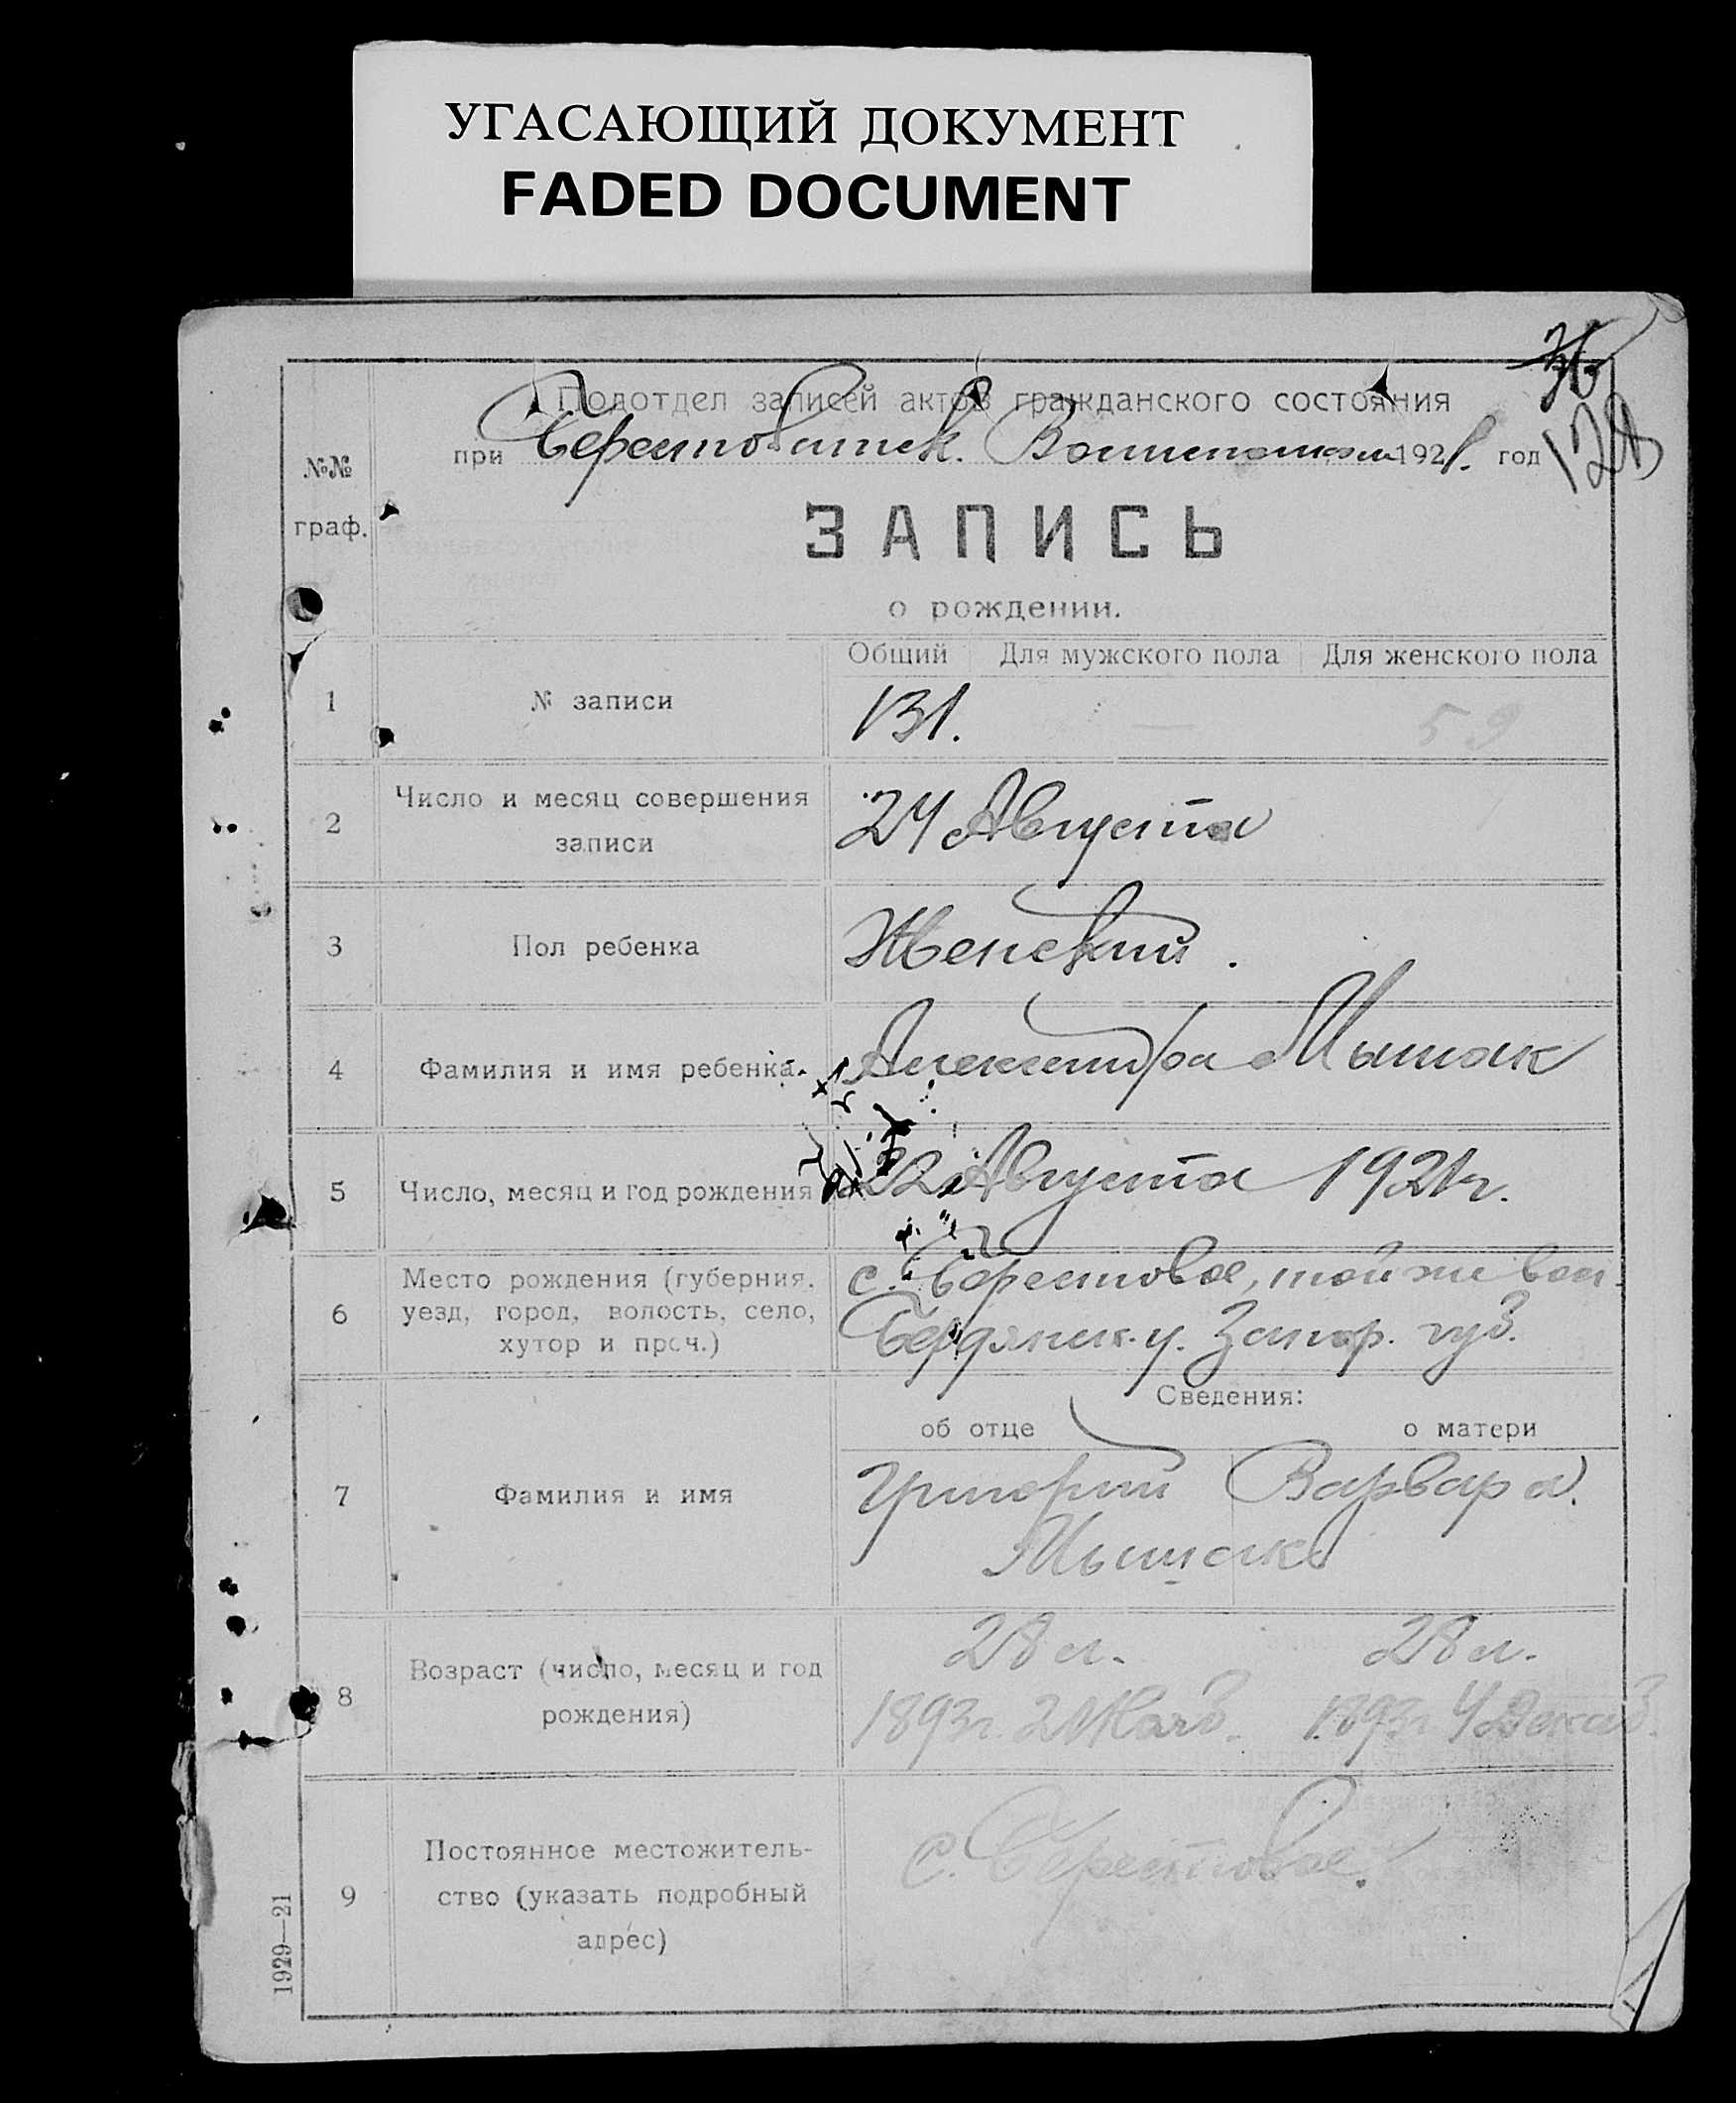 УГАСАЮЩИЙ ДОКУМЕНТ
FADED DOCUMENT
36
128
Подотдел записей актов гражданского состояния
при Берестоватск. Волисполкоме 1921. год
№№ граф.
ЗАПИСЬ
о рождении.
Общий Для мужского пола Для женского пола
1 № записи 131. — 59
2 Число и месяц совершения записи 24 Августа
3 Пол ребенка Женский.
4 Фамилия и имя ребенка Александра Мышак
5 Число, месяц и год рождения 22 Августа 1921 г.
6 Место рождения (губерния, уезд, город, волость, село, хутор и проч.)
с. Берестовое, той же вол.
Бердянск. у. Запор. губ.
Сведения:
об отце о матери
7 Фамилия и имя Григорий Варвара.
Мышак
8 Возраст (число, месяц и год рождения)
28 л. 28 л.
1893 г. 2 1893 г. 4 Декаб.
9 Постоянное местожительство (указать подробный адрес)
с. Берестовое.
1929—21